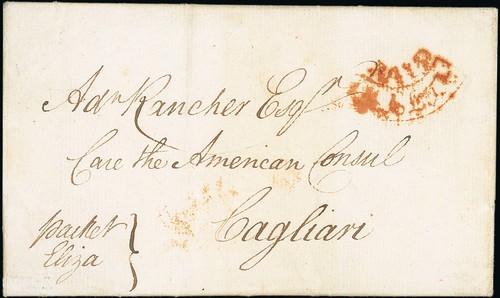 Adm Rancher Esqr
Care the American Consul
Cagliari
packet
Eliza